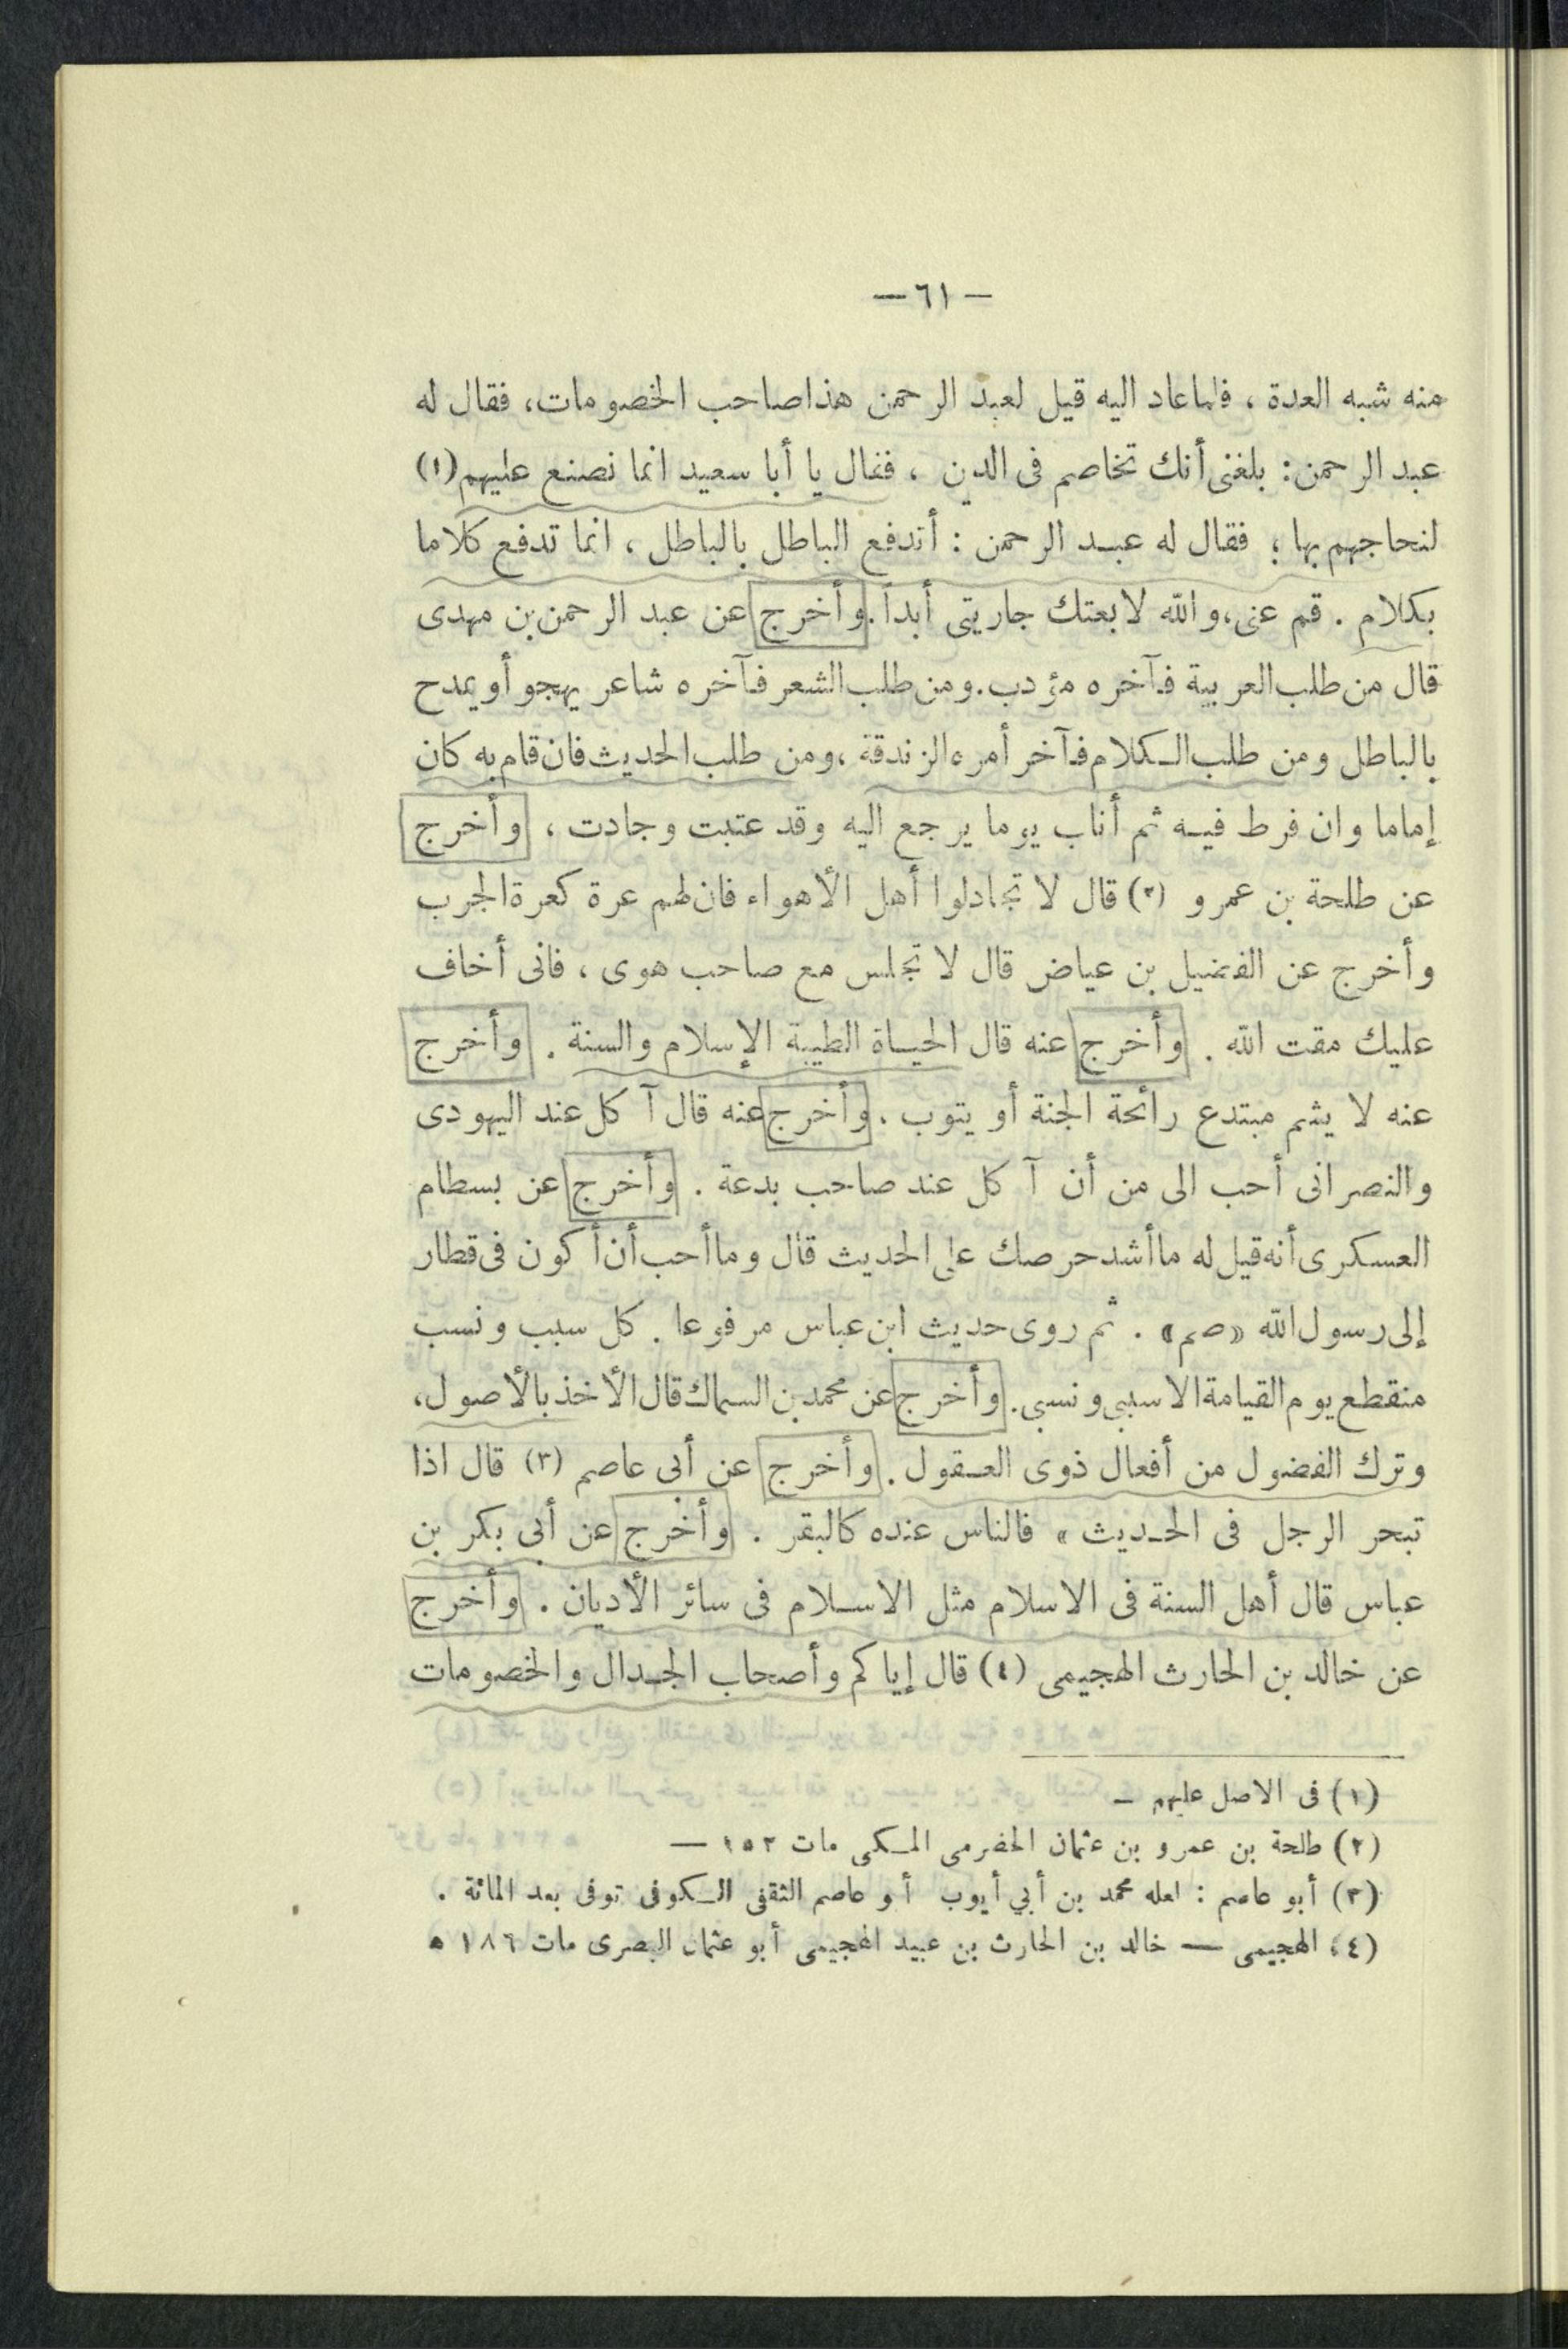 — ٦١ —
منه شبه العدة ، فلما عاد اليه قيل لعبد الرحمن هذا صاحب الخصومات، فقال له
عبد الرحمن: بلغنى أنك تخاصم فى الدين ، فقال يا أبا سعيد انما نصنع عليهم (١)
لنحاجهم بها ؛ فقال له عبد الرحمن : أتدفع الباطل بالباطل ، انما تدفع كلاما
بكلام . قم عنى، والله لا بعتك جاريتى أبداً . وأخرج عن عبد الرحمن بن مهدى
قال من طلب العربية فآخره مؤدب. ومن طلب الشعر فآخره شاعر يهجو أو يمدح
بالباطل ومن طلب الكلام فآخر أمره الزندقة ، ومن طلب الحديث فان قام به كان
إماما وان فرط فيه ثم أناب يوما يرجع اليه وقد عتبت وجادت ، وأخرج
عن طلحة بن عمرو (٢) قال لا تجادلوا أهل الأهواء فان لهم عرة كعرة الجرب
وأخرج عن الفضيل بن عياض قال لا تجلس مع صاحب هوى ، فانى أخاف
عليك مقت الله . وأخرج عنه قال الحياة الطيبة الإسلام والسنة . وأخرج
عنه لا يشم مبتدع رائحة الجنة أو يتوب . وأخرج عنه قال آكل عند اليهودى
والنصرانى أحب الى من أن آكل عند صاحب بدعة . وأخرج عن بسطام
العسكرى أنه قيل له ما أشد حرصك على الحديث قال وما أحب أن أكون فى قطار
إلى رسول الله «صم» . ثم روى حديث ابن عباس مرفوعا . كل سبب ونسب
منقطع يوم القيامة الا سببى ونسبى. وأخرج عن محمد بن السماك قال الأخذ بالأصول،
وترك الفضول من أفعال ذوى العقول . وأخرج عن أبى عاصم (٣) قال اذا
تبحر الرجل فى الحديث » فالناس عنده كالبقر . وأخرج عن أبى بكر بن
عباس قال أهل السنة فى الاسلام مثل الاسلام فى سائر الأديان . وأخرج
عن خالد بن الحارث الهجيمى (٤) قال إياكم وأصحاب الجدال والخصومات
(١) فى الاصل عليهم —
(٢) طلحة بن عمرو بن عثمان الحضرمى المكى مات ١٥٢ —
(٣) أبو عاصم : لعله محمد بن أبي أيوب أبو عاصم الثقفى الكوفى توفى بعد المائة .
(٤) الهجيمى — خالد بن الحارث بن عبيد الهجيمى أبو عثمان البصرى مات ١٨٦ ه